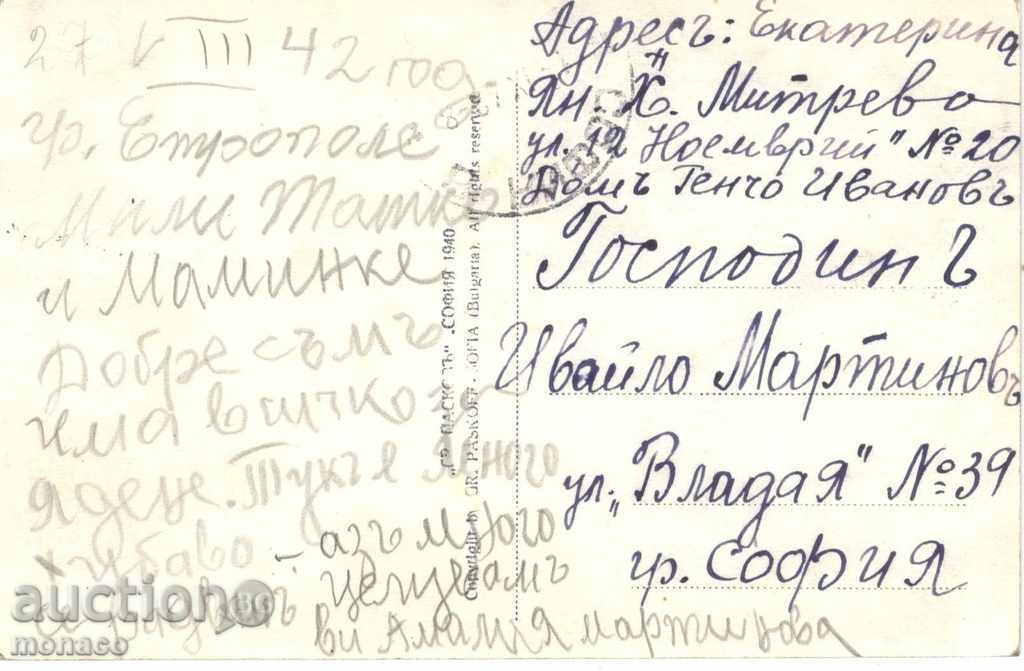 27 VIII 42 год.
гр. Етрополе
Мили Татко
и Маминке
Добре съмъ
има всичко за
ядене. Тукъ е много
хубаво
- азъ много
целувамъ
ви Амалия Мартинова
"ГР. ПАСКОВЪ" - СОФИЯ 1940
Copyright by GR. PASKOFF - SOFIA (Bulgaria). All rights reserve
Адресъ: Екатерина
Ян. Х. Митрева
ул. 12 Ноемврий" № 20
Домъ Генчо Ивановъ
Господинъ
Ивайло Мартиновъ
ул. "Владая" № 39
гр. София
auction.bg
monaco